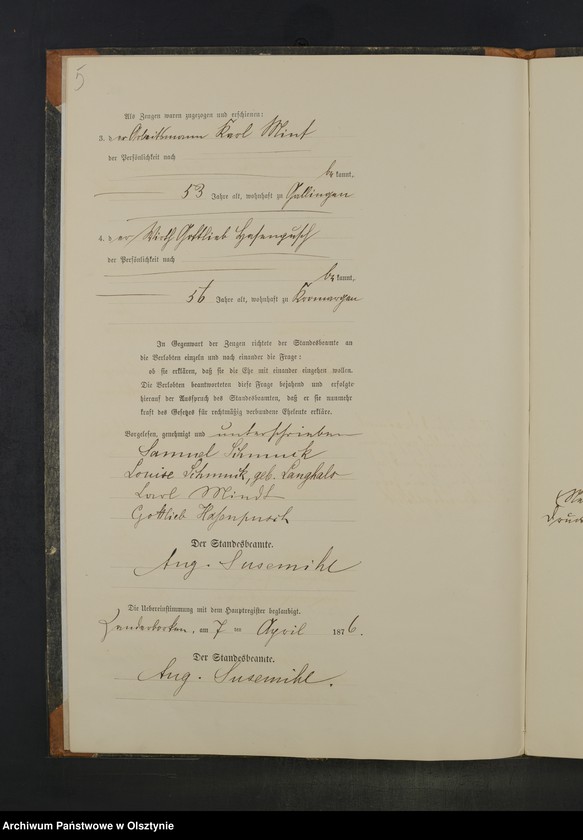 5
Als Zeugen waren zugezogen und erschienen:
3. der Arbeitsmann Karl Mint
der Persönlichkeit nach
be kannt,
53 Jahre alt, wohnhaft zu Gallingen
4. der Wirth Gottlieb Hasenpusch
der Persönlichkeit nach
be kannt,
56 Jahre alt, wohnhaft zu Kromargen
In Gegenwart der Zeugen richtete der Standesbeamte an
die Verlobten einzeln und nach einander die Frage:
ob sie erklären, daß sie die Ehe mit einander eingehen wollen.
Die Verlobten beantworteten diese Frage bejahend und erfolgte
hierauf der Ausspruch des Standesbeamten, daß er sie nunmehr
kraft des Gesetzes für rechtmäßig verbundene Eheleute erkläre.
Vorgelesen, genehmigt und unterschrieben
Samuel Schmnik
Louise Schmnik, geb. Langhals
Carl Mindt
Gottlieb Hasenpusch
Der Standesbeamte.
Aug. Susemihl
Die Uebereinstimmung mit dem Hauptregister beglaubigt.
am 7 ten April 1876.
Der Standesbeamte.
Aug. Susemihl.
Archiwum Państwowe w Olsztynie